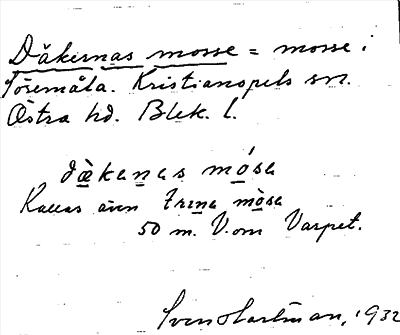 Däkernas mosse = mosse i
Töremåla. Kristianopels sn.
Östra hd. Blek. l.
dækanas mósa
Kallas även trɪna mòsa
50 m. V. om Varpet.
Sven Hartman, 1932